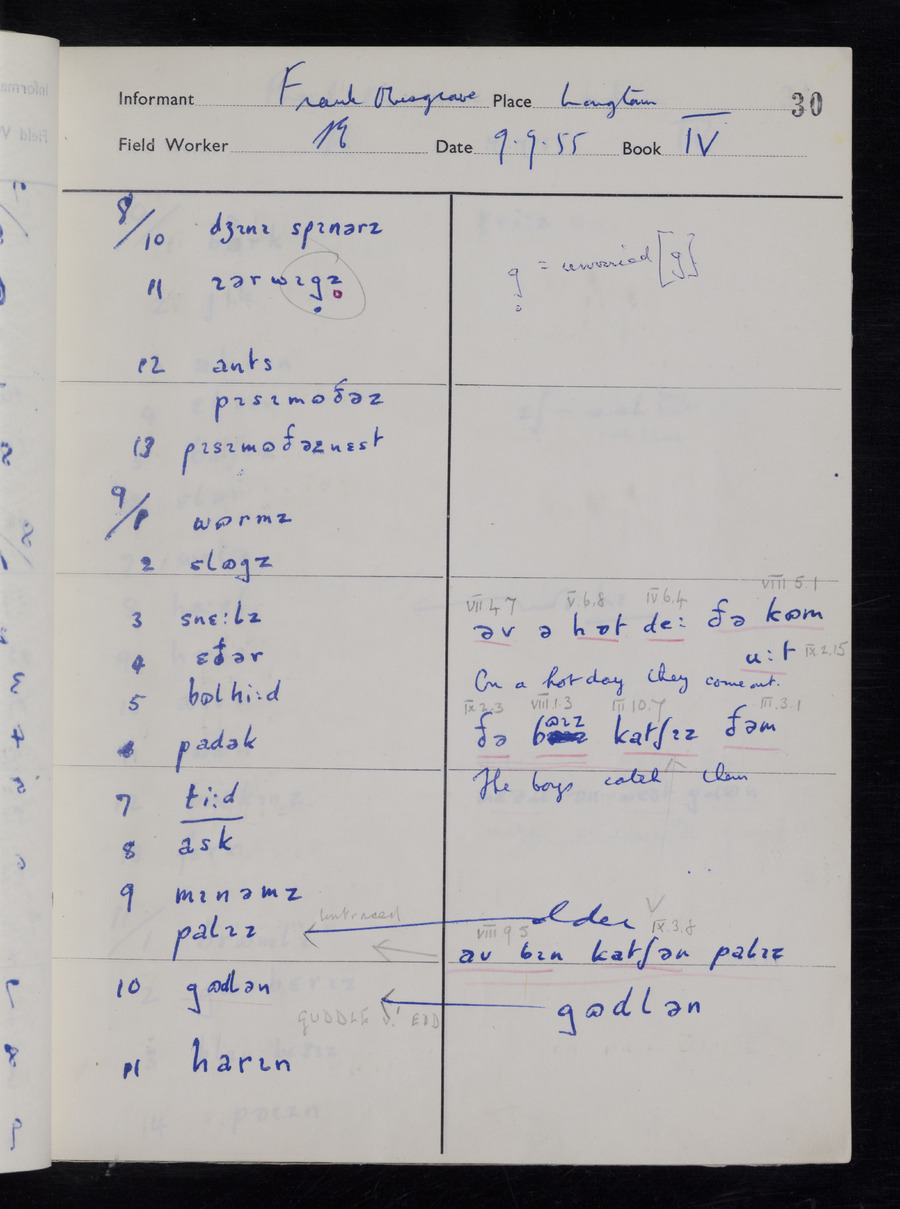 Informant Frank Musgrave Place Longtown 30
Field Worker Date 9.9.55 Book IV
8/10 dʒɪnɪ spɪnərz
11 ɪərwɪgz̥
g̥ = unvoiced [g]
12 ants
pɪsɪmʊðəz
13 pɪsɪmʊðəznɛst
9/1 wørmz
2 slʊgz
3 snɛ:lz
VII 4 7 V.6.8 IV 6.4 VIII 5.1
əv ə hɒt de: ðə kʊm
u:t IX 2.15
4 ɛðər
On a hot day they come out.
5 bʊlhi:d
IX 2.3 VIII 1.3 III 10.7 III.3.1
6 padək
ðə bɔɪz katʃɪz ðəm
The boys catch them
7 ti:d
8 ask
9 mɪnəmz
palɪz
untraced
older V
VIII 9 5 IX.3.8
av bɪn katʃən palɪz
10 gʊdlən
GUDDLE v.' EDD
gʊdlən
11 harɪn